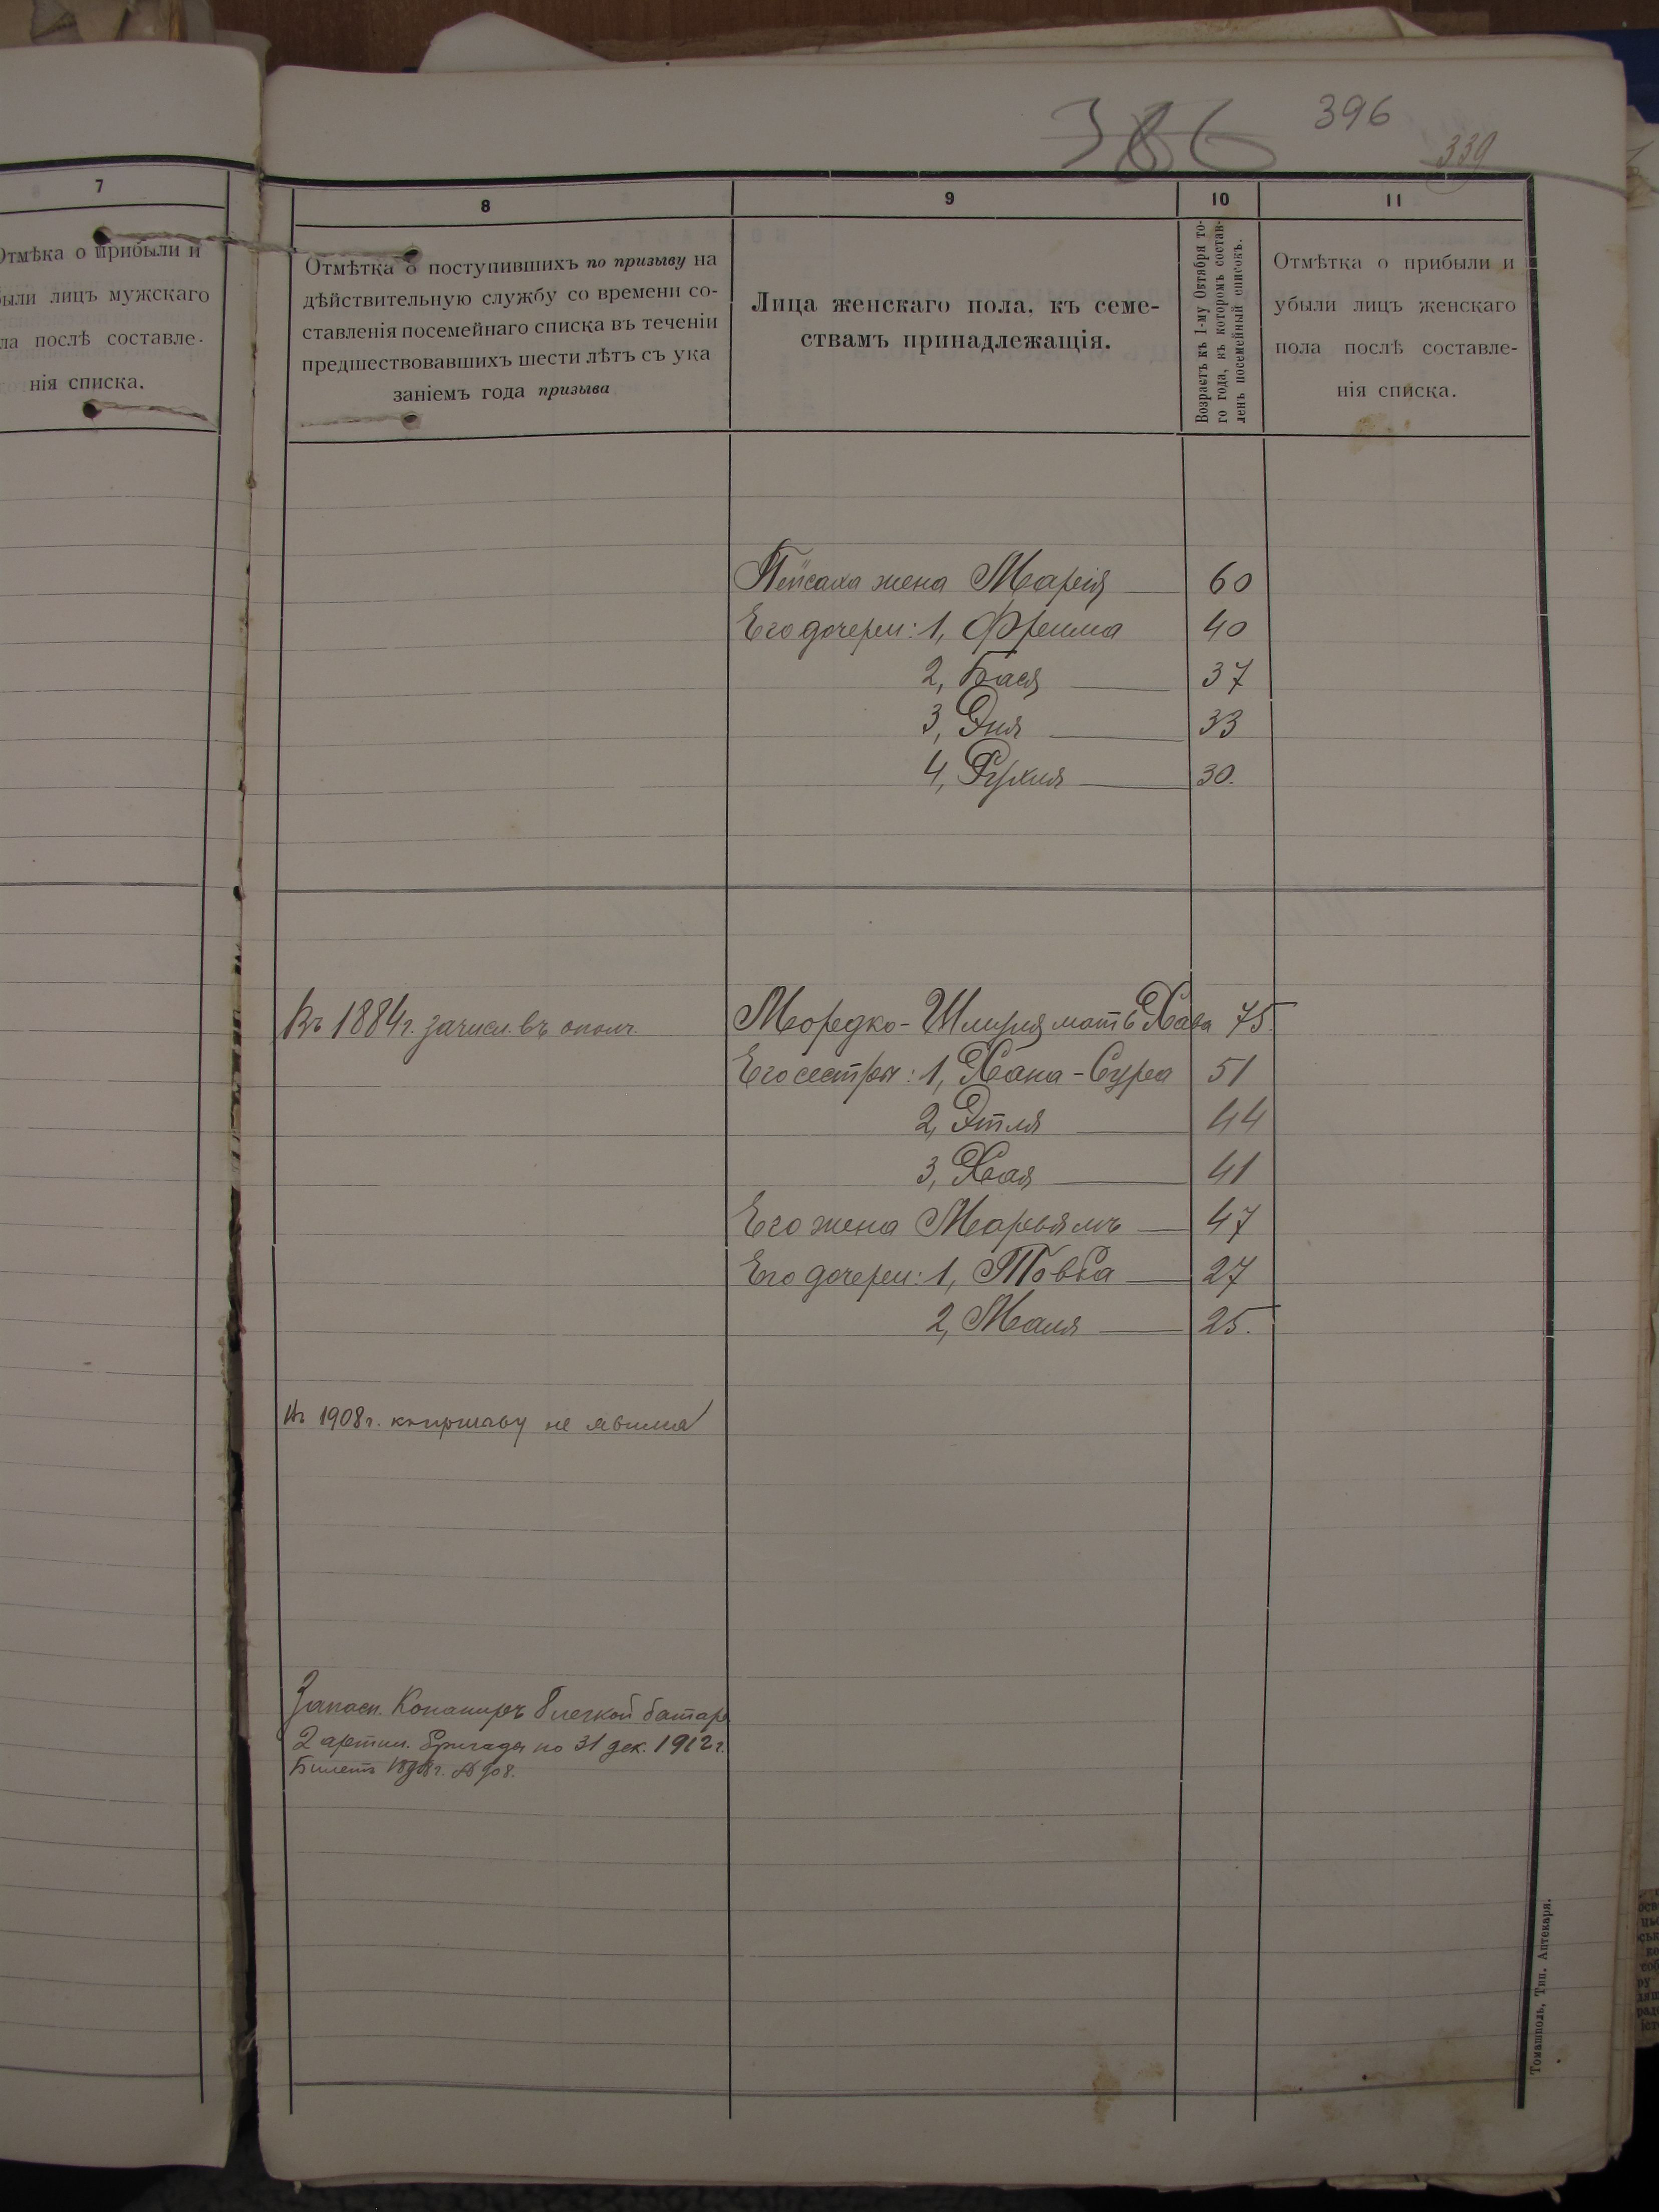 386
396
339
7
Отмѣка о прибыли и
были лицъ мужскаго
ла послѣ составле-
нія списка.
8
Отмѣтка о поступившихъ по призыву на
дѣйствительную службу со времени со-
ставленія посемейнаго списка въ теченіи
предшествовавшихъ шести лѣтъ съ ука
заніемъ года призыва
9
Лица женскаго пола, къ семе-
ствамъ принадлежащія.
10
Возрастъ къ 1-му Октября то-
го года, въ которомъ состав-
ленъ посемейный списокъ.
11
Отмѣтка о прибыли и
убыли лицъ женскаго
пола послѣ составле-
нія списка.
Пейсаха жена Марія 60
Его дочери: 1, Фрейма 40
2, Бася 37
3, Эня 33
4, Рухля 30.
Въ 1884 г. зачисл. въ ополч.
Мордко-Шлиуня мать Хава 75.
Его сестры: 1, Хана-Сура 51
2, Этля 44
3, Хая 41
Его жена Марьямъ 47
Его дочери: 1, Товба 27
2, Маня 25.
Въ 1908 г. къ призыву не явился
Запасн. Канониръ 8 легкой батаре
2 артил. бригады по 31 дек. 1912 г.
Билетъ г. № 908.
Томашполь, Тип. Аптекаря.